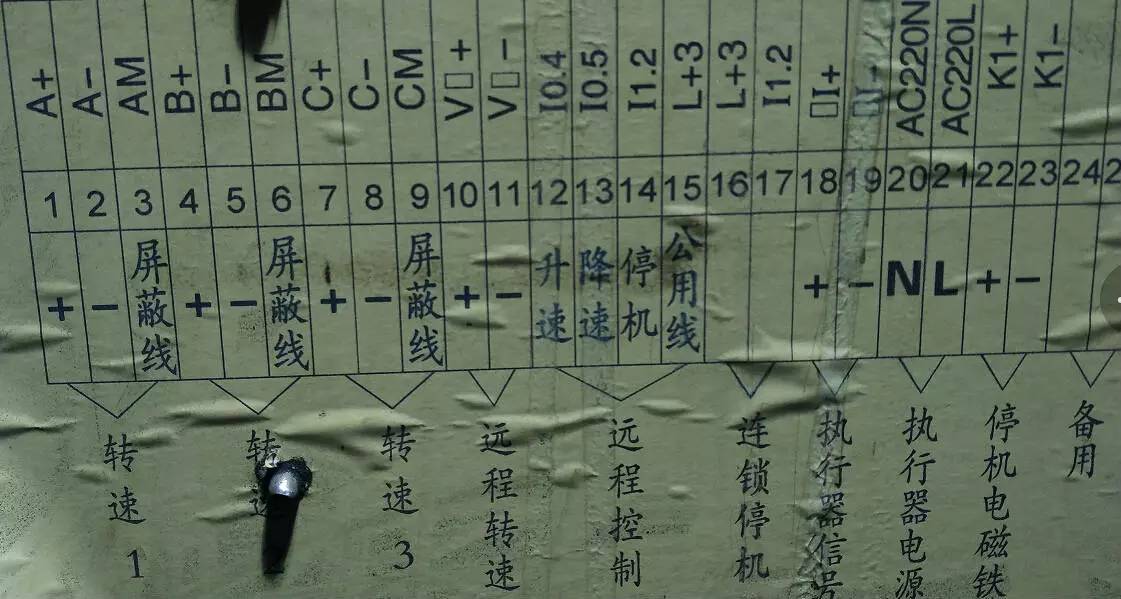 A+ A− AM B+ B− BM C+ C− CM V□+ V□− I0.4 I0.5 I1.2 L+3 L+3 I1.2 □I+ □I− AC220N AC220L K1+ K1−
1 2 3 4 5 6 7 8 9 10 11 12 13 14 15 16 17 18 19 20 21 22 23 24
+ − 屏蔽线 + − 屏蔽线 + − 屏蔽线 + − 升速 降速 停机 公用线 + − N L + −
转速1 转 转速3 远程转速 远程控制 连锁停机 执行器信号 执行器电源 停机电磁铁 备用